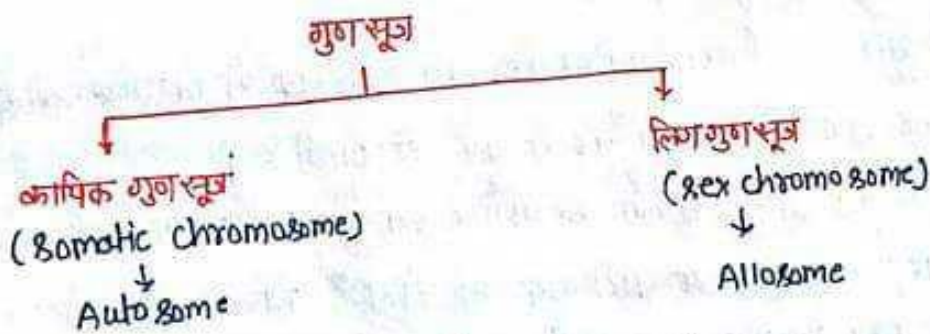 गुण सूत्र
कायिक गुण सूत्र
(somatic chromosome)
Autosome
लिंग गुण सूत्र
(sex chromosome)
Allosome